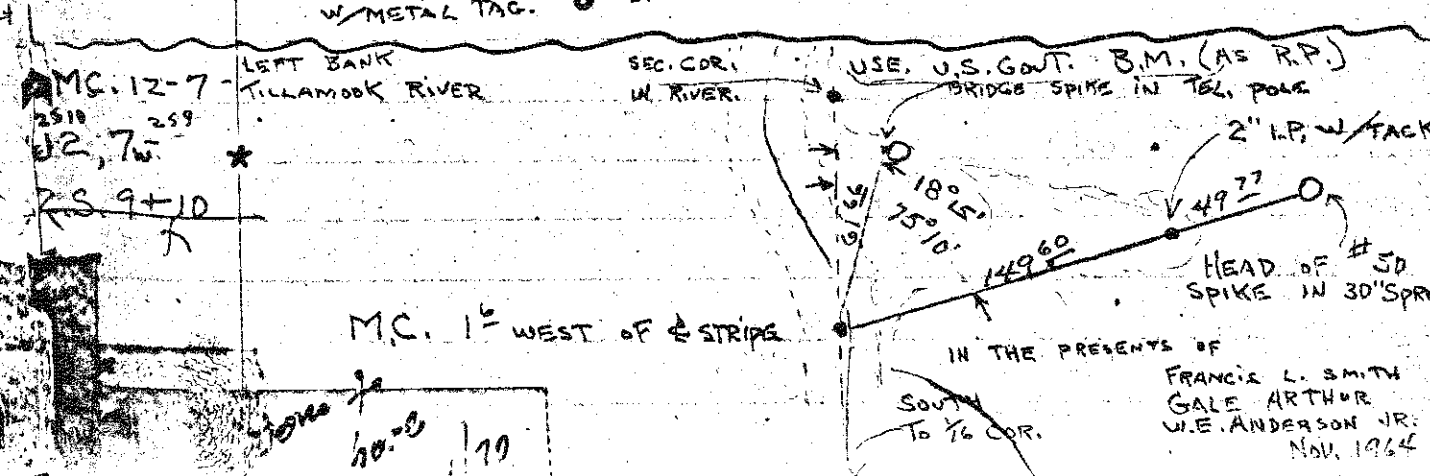 W/METAL TAG.
MC. 12-7 -
LEFT BANK
TILLAMOOK RIVER
SEC. COR.
IN RIVER.
USE. U.S. GOVT. B.M. (AS R.P.)
BRIDGE SPIKE IN TEL. POLE
2" I.P. W/TACK
R.S. 9+10
18° 15'
75° 10'
149 60
49 77
HEAD OF #50
SPIKE IN 30" SPR
M.C. 1 6 WEST OF ℄ STRIPE
IN THE PRESENTS OF
FRANCIS L. SMITH
GALE ARTHUR
W.E. ANDERSON JR.
NOV. 1964
SOUTH
TO 1/16 COR.